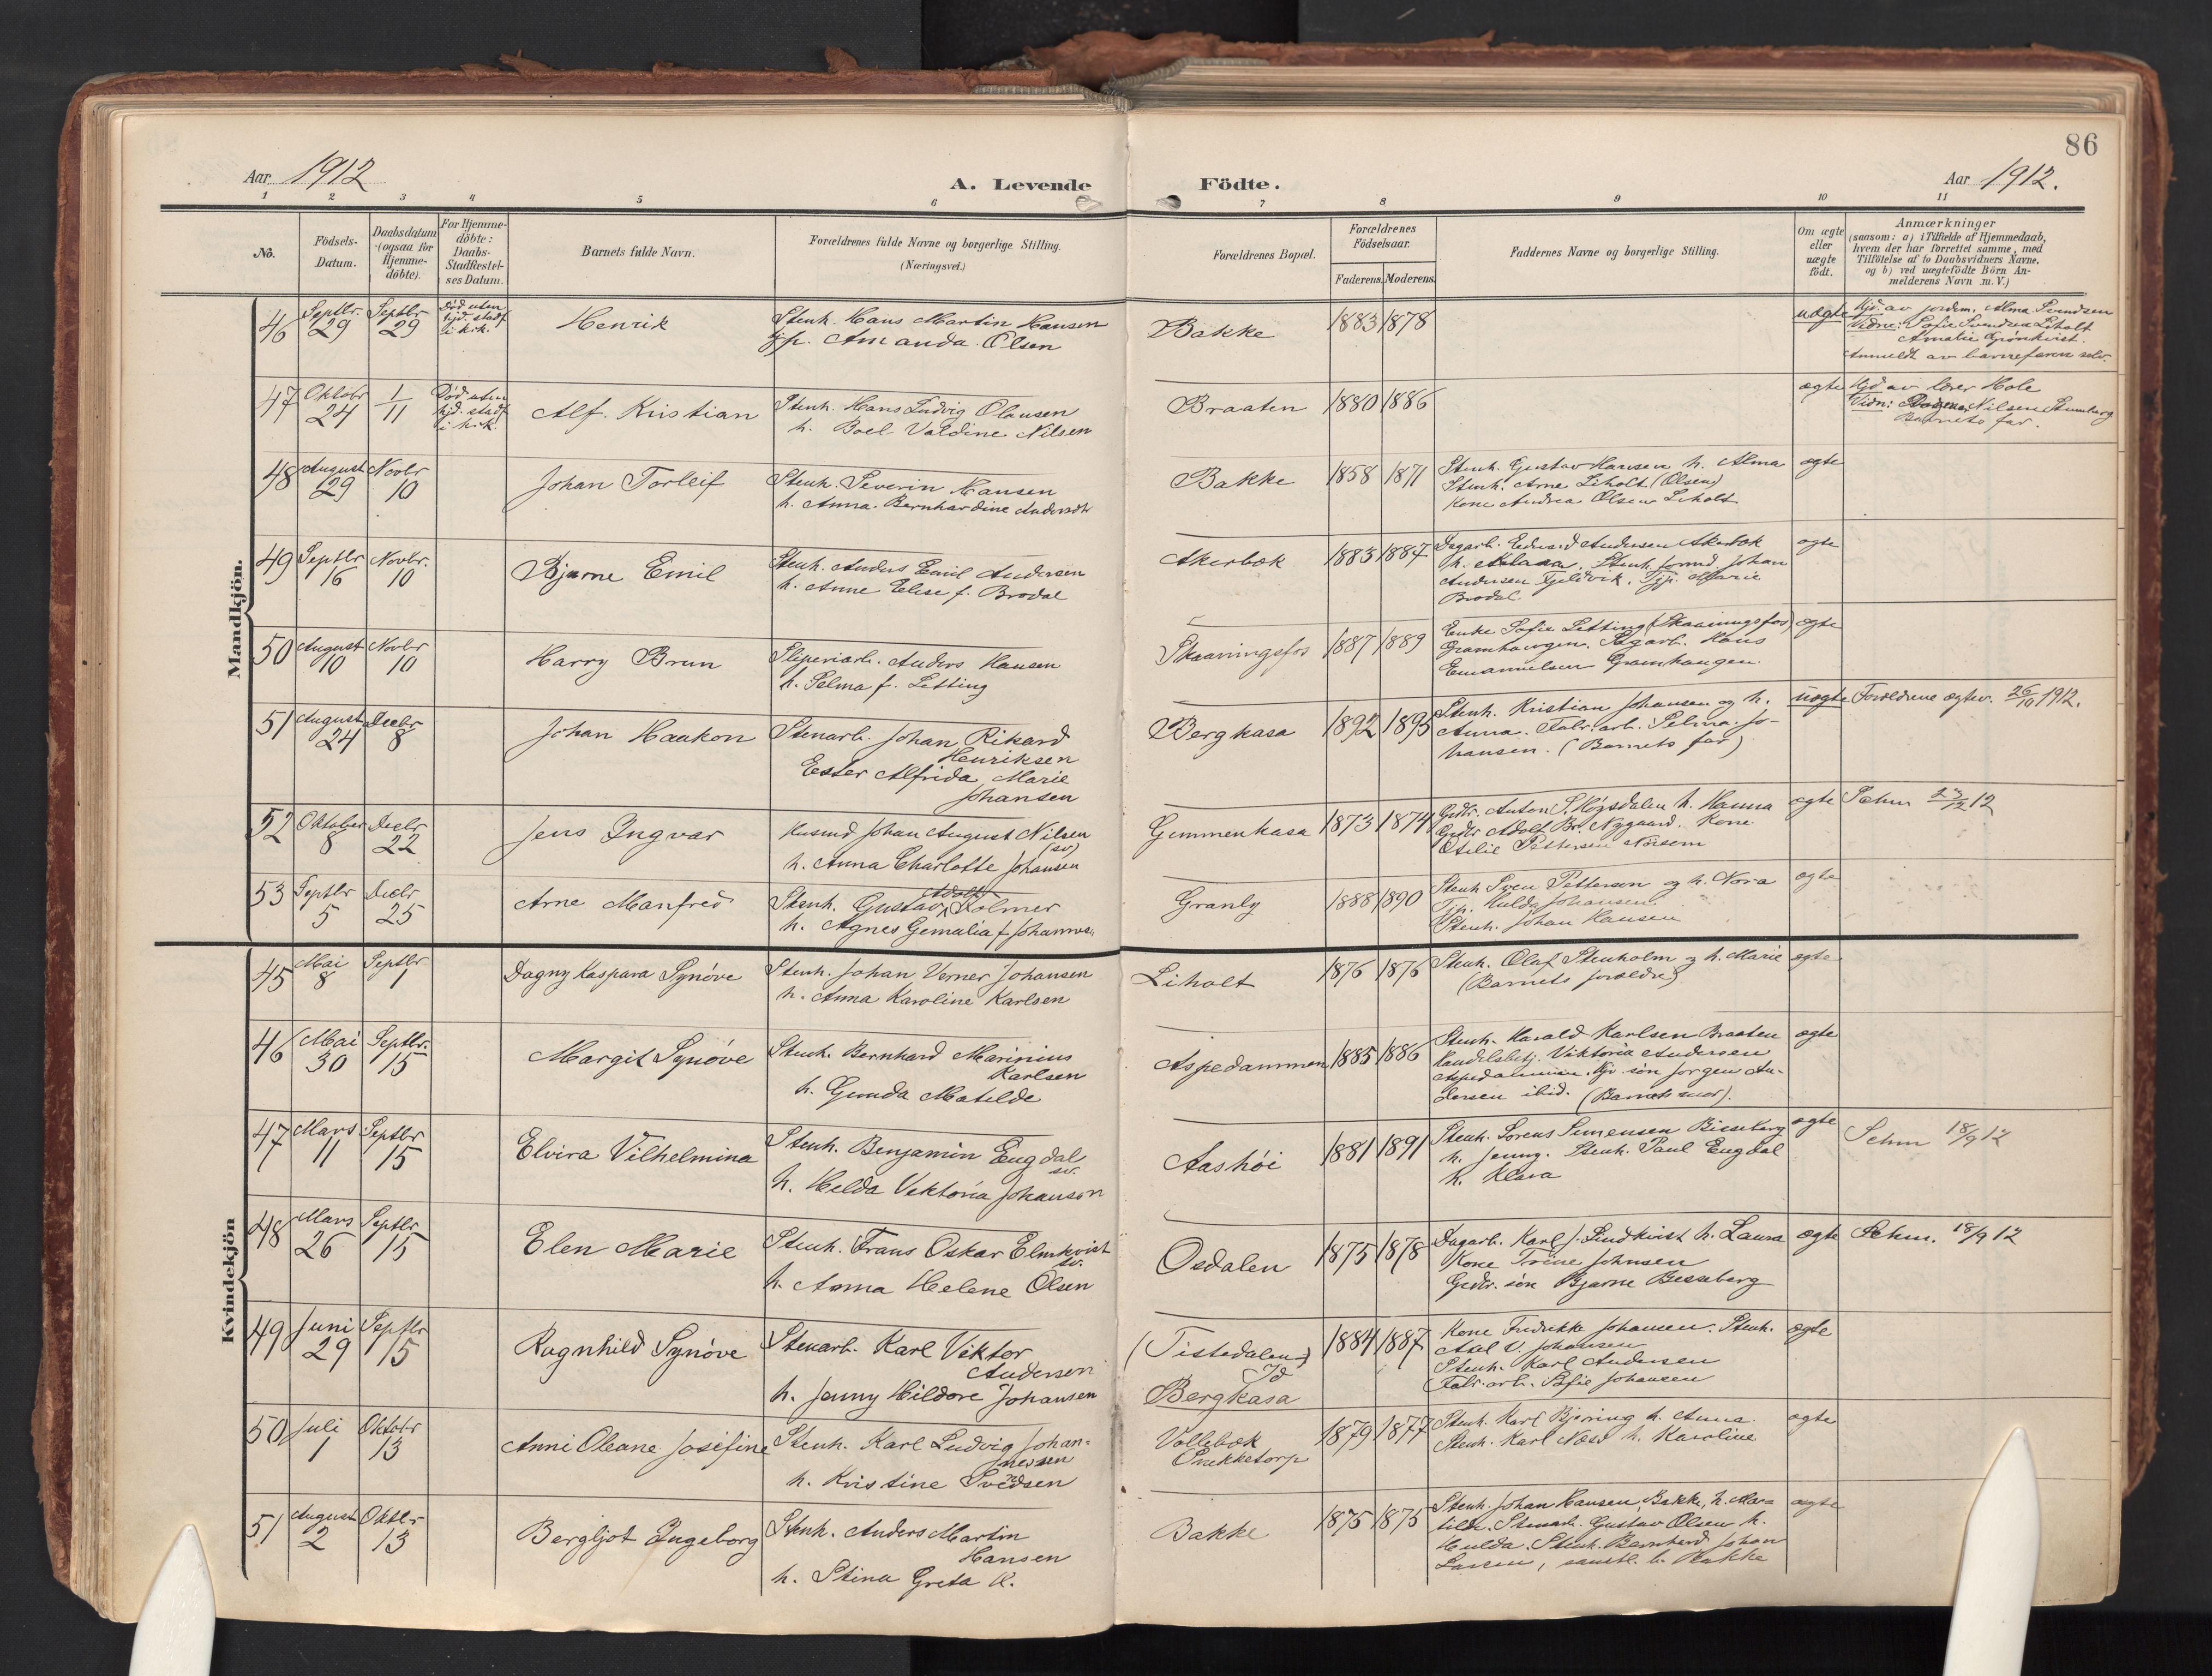 86
Aar 1912
A. Levende
Födte.
Aar 1912.
1 2 3 4 5 6 7 8 9 10 11
No.
Födsels-
Datum.
Daabsdatum
(ogsaa for
Hjemme-
döbte).
For Hjemme-
döbte:
Daabs-
Stadfæstel-
ses Datum.
Barnets fulde Navn.
Forældrenes fulde Navne og borgerlige Stilling.
(Næringsvei.)
Forældrenes Bopæl.
Forældrenes
Födselsaar.
Faderens. Moderens.
Faddernes Navne og borgerlige Stilling.
Om ægte
eller
uægte
födt.
Anmærkninger
(saasom: a) i Tilfælde af Hjemmedaab,
hvem der har forrettet samme, med
Tilföielse af to Daabsvidners Navne,
og b) ved uægtefödte Börn An-
melderens Navn m. V.)
Mandkjön.
46
Septbr.
29
Septbr
29
Död uten
hjd. stadf.
i kirk.
Henrik
Stenh. Hans Martin Hansen
pp. Amanda Olsen
Bakke
1883 1878
uægte
Hjd. av jordm. Alma Svendsen
Vidne: Sofie Svendsen Liholt
Amalie Grönkvist.
Anmeldt av barnefaren selv.
47
Oktobr
24
1/11
Död uten
hjd. stadf
i kirk.
Alf. Kristian
Stenh. Hans Ludvig Olausen
h. Boel Valdine Nilsen
Braaten
1880 1886
ægte
Hjd. av lærer Hole
Vidn: Nilsen Stumberg
Barnets far.
48
August
29
Novbr
10
Johan Torleif
Stenh. Severin Hansen
h. Anna Bernhardine Andersdtr
Bakke
1858 1871
Stenh. Gustav Hansen h. Alma
Stenh. Arne Liholt (Olsen)
Kone Andrea Olsen Liholt
ægte
49
Septbr
16
Novbr.
10
Bjarne Emil
Stenh. Anders Emil Andersen
h. Anne Elise f. Brodal
Akerbæk
1883 1887
Dagarb. Edvard Andersen Akerbæk
h. Klara. Stenh. formd. Johan
Andersen Tjeldvik. Tjp. Marie
Brodal.
ægte
50
August
10
Novbr
10
Harry Brun
Sliperiarb. Anders Hansen
h. Selma f. Letting
Skaaningsfos
1887 1889
Enke Sofie Letting (Skaaningsfos)
Gramhaugen. Sagarb. Hans
Emanuelsen Gramhaugen.
ægte
51
August
24
Decbr
8
Johan Haakon
Stenarb. Johan Rikard
Henriksen
Ester Alfrida Marie
Johansen
Bergkasa
1892 1895
Stenh. Kristian Johansen og h.
Anna. Fabr.arb. Selma Jo-
hansen. (Barnets far)
uægte
Forældrene ægtev. 26/10 1912.
52
Oktober
8
Decbr
22
Jens Ingvar
Husmd Johan August Nilsen
(sv)
h. Anna Charlotte Johansen
Gimmenkasa
1873 1874
Gbr. Anton Skögsdalen h. Hanna
Gbr Adolf Br. Nygaard. Kone
Otilie Pettersen Norsem
ægte
Schm 23/12 12
53
Septbr
5
Decbr
25
Arne Manfred
Adolf
Stenh. Gustav Holmer
h. Agnes Gemalia f Johannes.
Granly
1888 1890
Stenh Sven Petterson og h. Nora
Tjp. Hulda Johansen.
Stenh. Johan Hansen
ægte
Kvindekjön
45
Mai
8
Septbr
1
Dagny Kaspara Synöve
Stenh. Johan Verner Johansen
h. Anna Karoline Karlsen
Liholt
1876 1876
Stenh. Olaf Stenholm og h. Marie
(Barnets forældre)
ægte
46
Mai
30
Septbr.
15
Margit Synöve
Stenh. Bernhard Marinius
Karlsen
h. Gunda Matilde
Aspedammen
1885 1886
Stenh. Harald Karlsen Braaten
Handelsbetj. Viktoria Andersen
Aspedammen. Gbr. sön Jörgen An-
dersen ibid. (Barnets mor).
ægte
47
Mars
11
Septbr
15
Elvira Vilhelmina
Stenh. Benjamin Engdal
sv.
h. Helda Viktoria Johanson
Aashöi
1881 1891
Stenh. Sorens Simensen Bisseberg
h. Jenny. Stenh. Paul Engdal
h. Klara
ægte
Schm 18/9 12
48
Mars
26
Septbr
15
Elen Marie
Stenh. Frans Oskar Elmkvist
sv.
h. Anna Helene Olsen
Osdalen
1875 1878
Dagarb. Karl J. Lindkvist h. Laura
Kone Trine Johnsen
Gbr. sön Bjarne Besseberg
ægte
Schm. 18/9 12
49
Juni
29
Septbr
15
Ragnhild Synöve
Stenarb. Karl Viktor
Andersen
h. Jenny Hildore Johansen
(Tistedalen)
Id
Bergkasa
1884 1887
Kone Fredrikke Johansen. Stenh.
Axel V. Johansen
Stenh. Karl Andersen
Fabr.arb. Sofie Johansen
ægte
50
Juli
1
Oktobr
13
Anni Oleane Joséfine
Stenh. Karl Ludvig Johan-
nessen
h. Kristine Svendsen
Vollebæk
Prækketorp
1879 1877
Stenh. Karl Bjerring h. Anna.
Stenh. Karl Næss h. Karoline.
ægte
51
August
2
Oktbr
13
Bergljot Ingeborg
Stenh. Anders Martin
Hansen
h. Stina Greta K.
Bakke
1875 1875
Stenh. Johan Hansen Bakke, h. Ma-
tilde. Stenarb. Gustav Olsen h.
Hulda. Stenh. Bernhard Johan
Larsen, samtl. b. Bakke
ægte